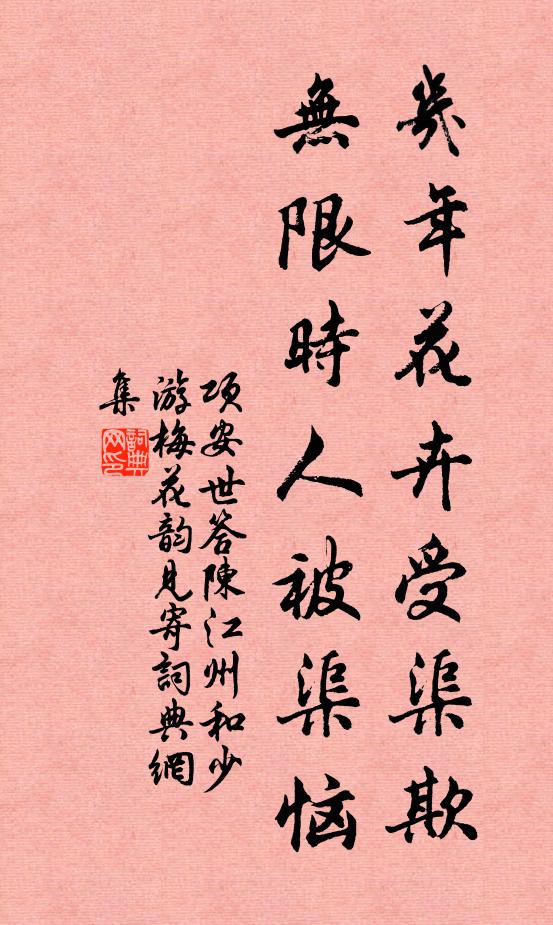 幾年花卉受渠欺
無限時人被渠恼
项安世答陳江州和少
游梅花韵見寄詞典網
集
詞典网印